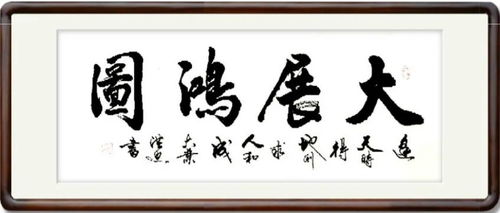 大展鴻圖
逢天時得地利求人和成大業
書